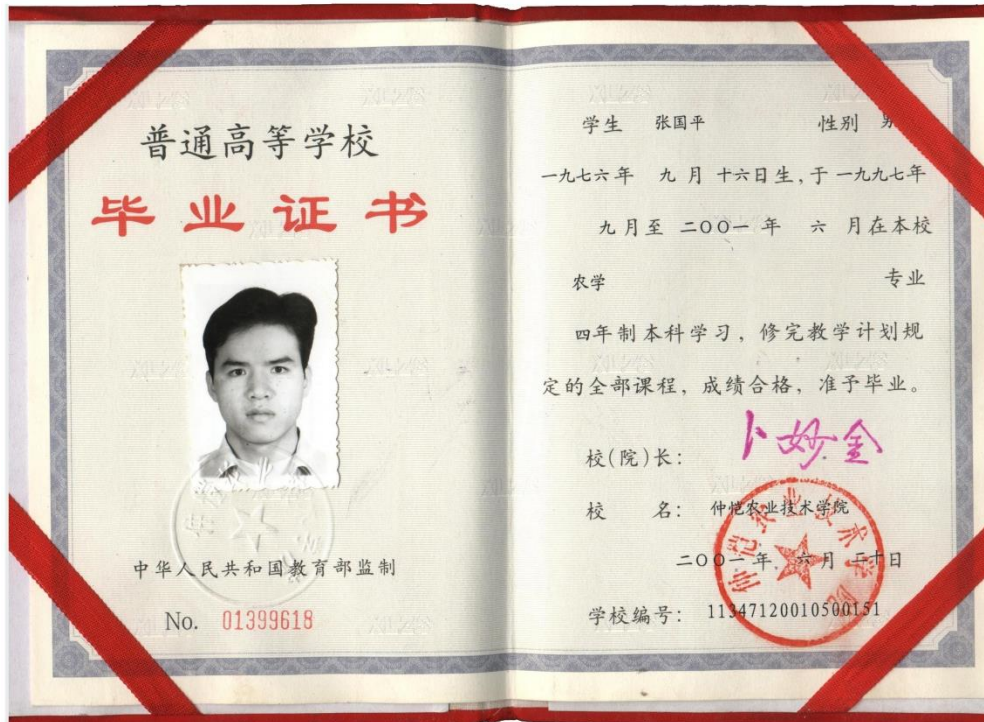 普通高等学校
毕业证书
中华人民共和国教育部监制
No. 01399618
学生 张国平 性别 男
一九七六年 九月十六日生,于一九九七年
九月至 二〇〇一年 六 月在本校
农学 专业
四年制本科学习，修完教学计划规
定的全部课程，成绩合格，准予毕业。
校(院)长: 卜妙金
校 名: 仲恺农业技术学院
二〇〇一年 六月 二十日
学校编号: 113471200105001​51
仲恺农业技术学院